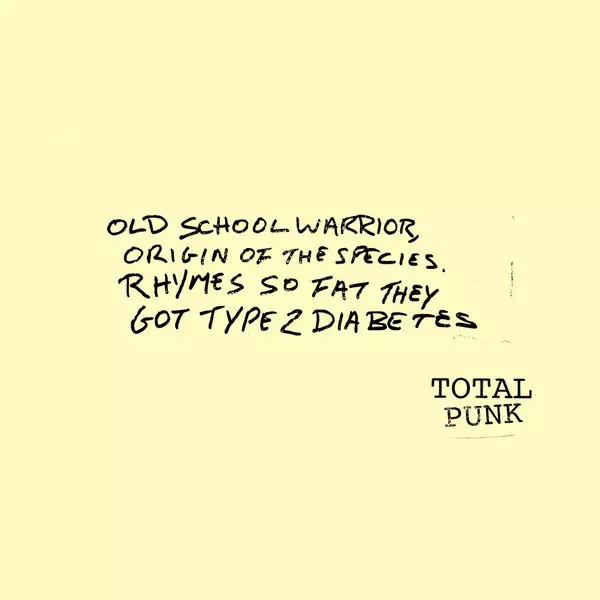 OLD SCHOOL WARRIOR,
ORIGIN OF THE SPECIES.
RHYMES SO FAT THEY
GOT TYPE 2 DIABETES
TOTAL
PUNK